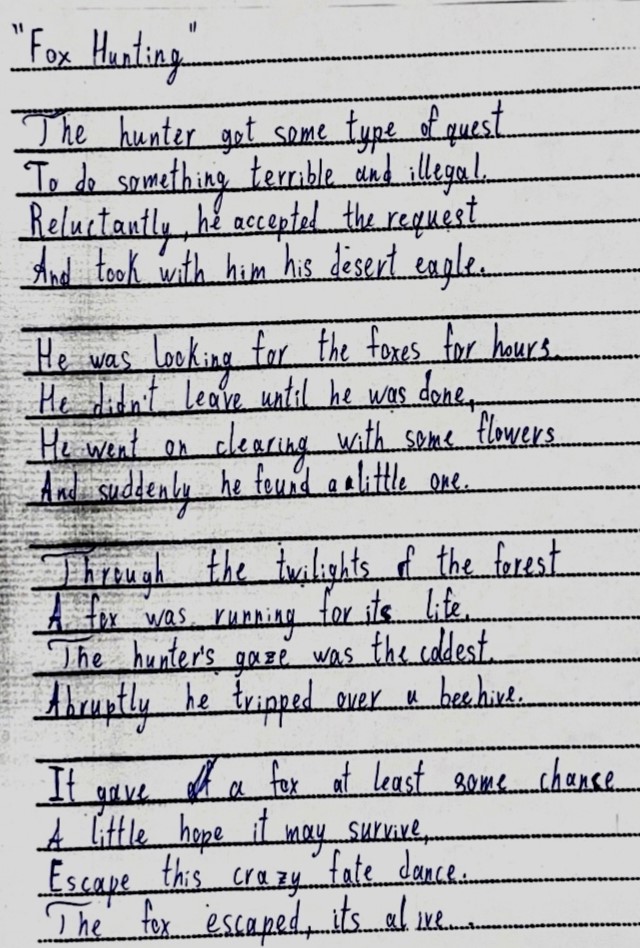 "Fox Hunting"
The hunter got some type of quest
To do something terrible and illegal.
Reluctantly, he accepted the request
And took with him his desert eagle.
He was looking for the foxes for hours.
He didn't leave until he was done,
He went on clearing with some flowers
And suddenly he found a little one.
Through the twilights of the forest
A fox was running for its life.
The hunter's gaze was the coldest.
Abruptly he tripped over a beehive.
It gave a fox at least some chance
A little hope it may survive,
Escape this crazy fate dance.
The fox escaped, its alive...